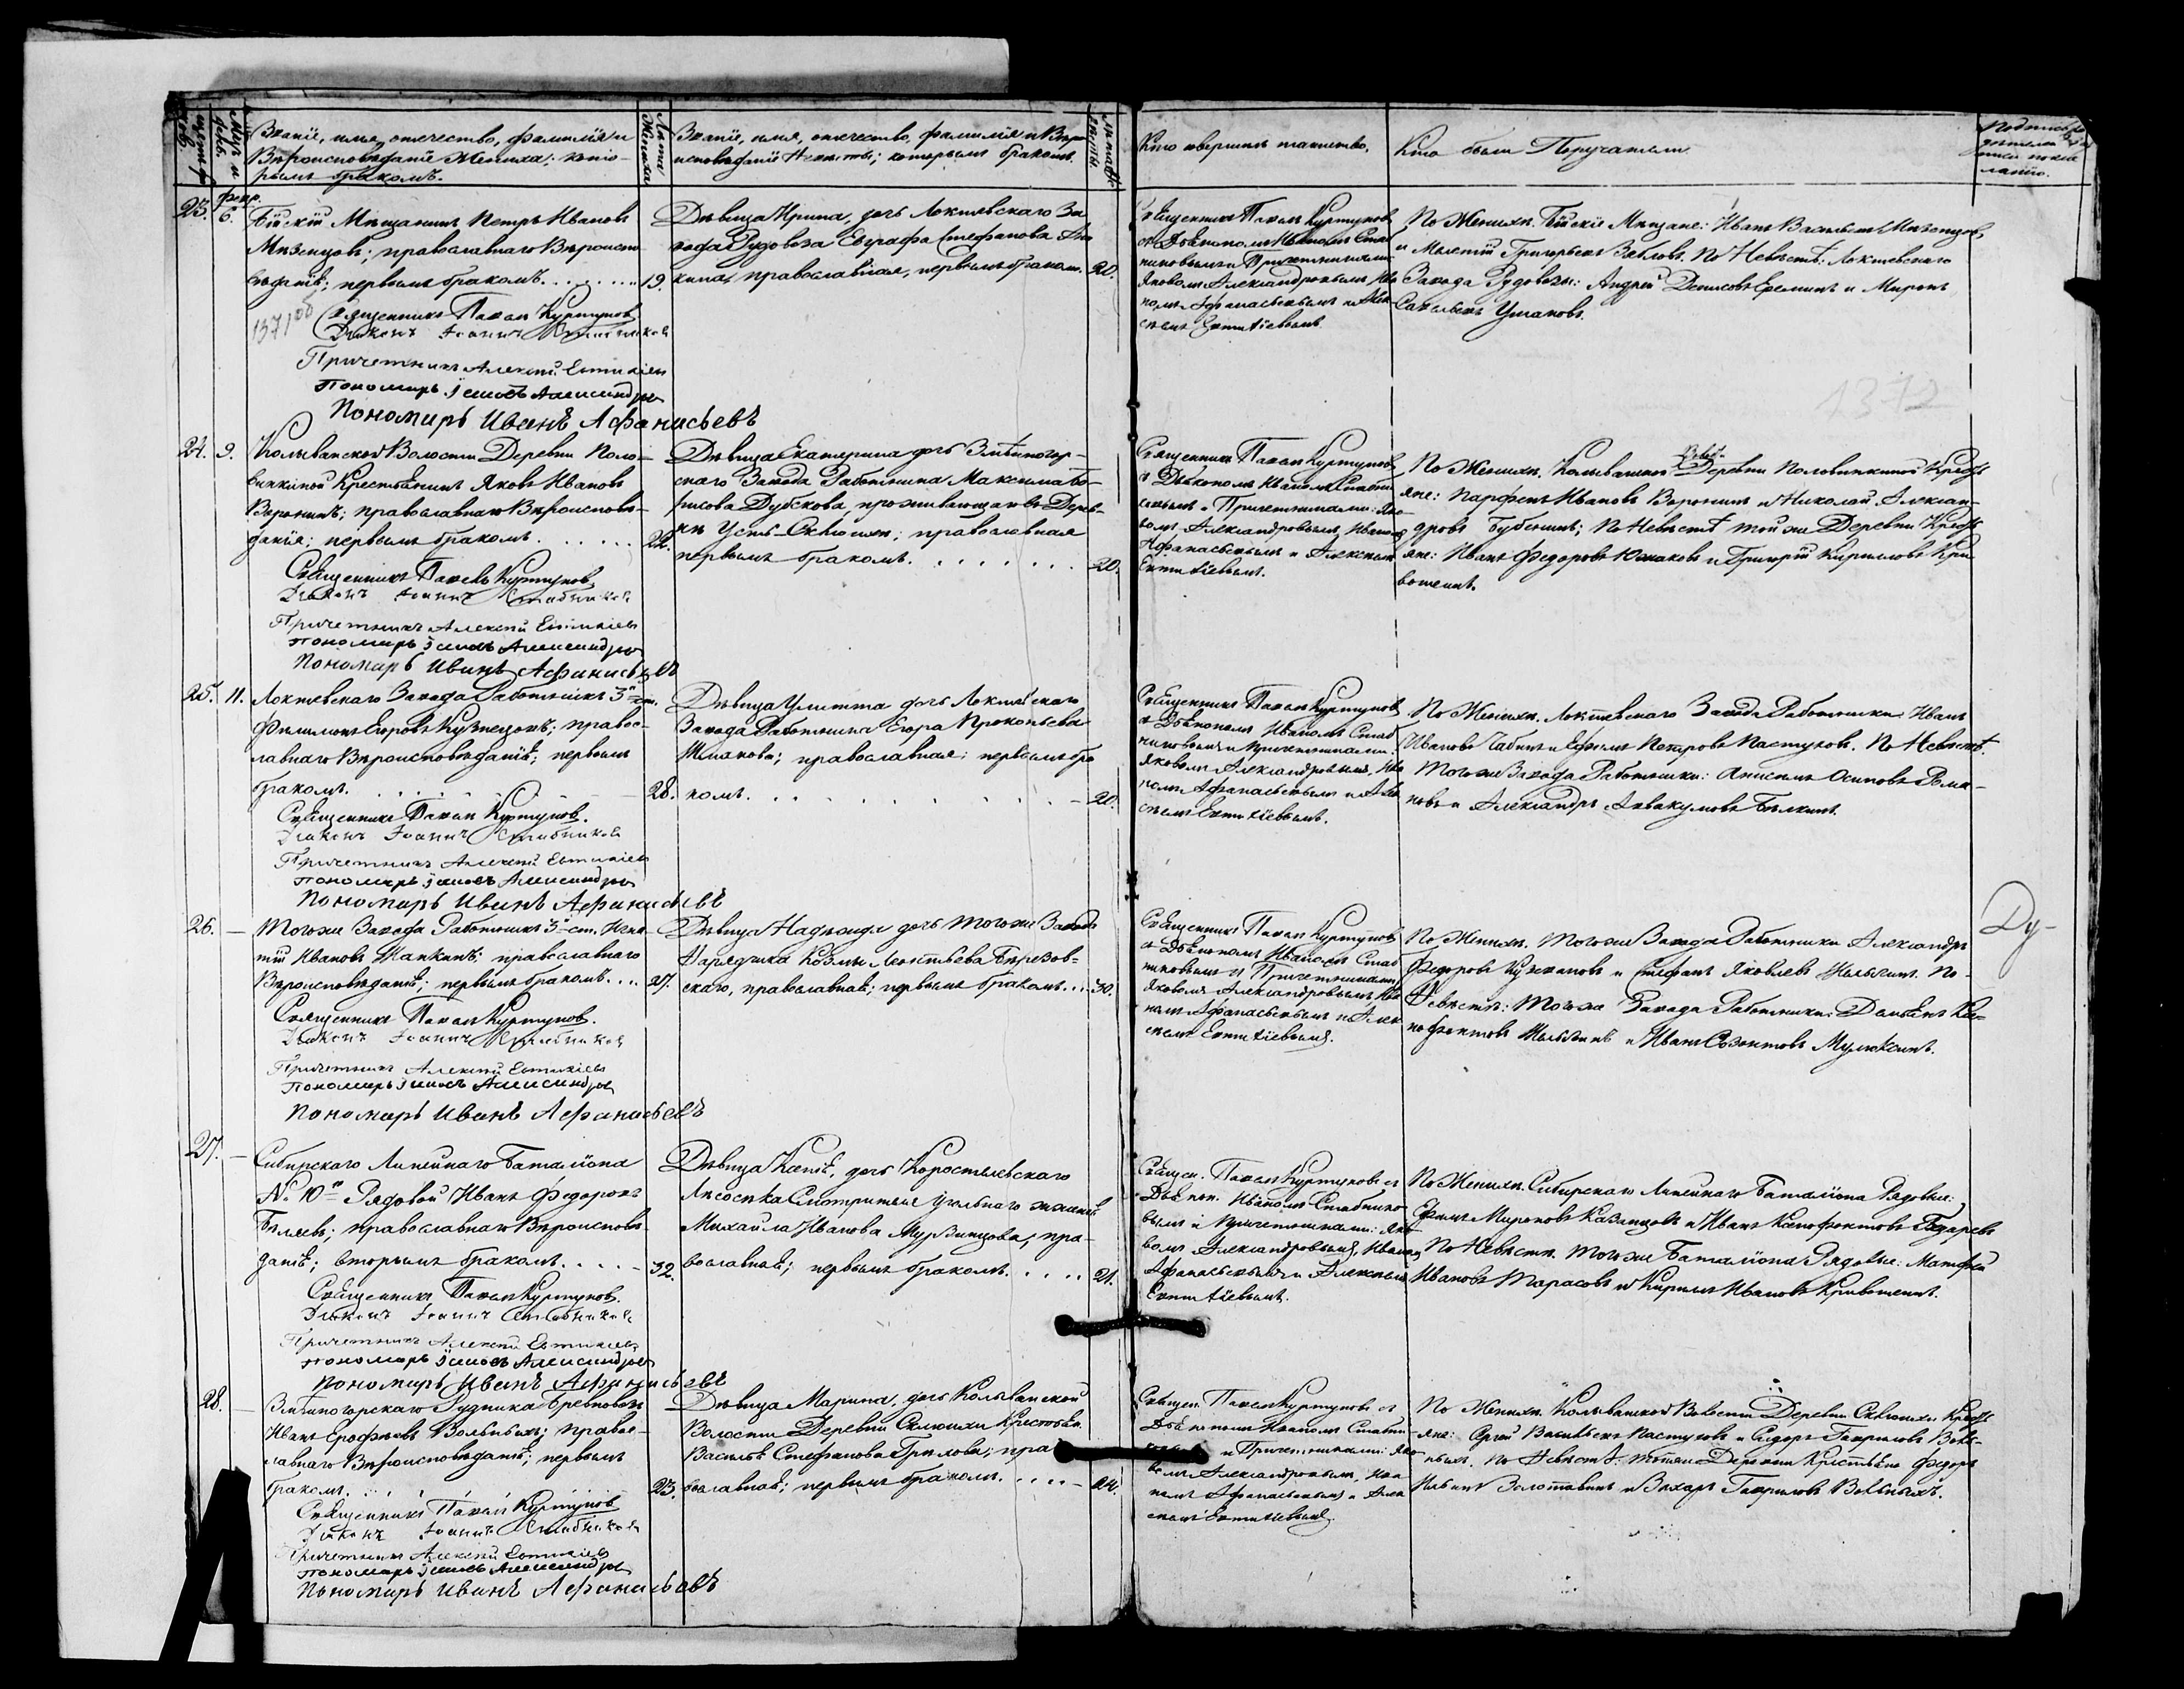 Званіе, имя, отечество, фамилія и
Вѣроисповѣданіе Жениха: кото-
рымъ бракомъ.
Лѣта Жениха
Званіе, имя, отечество, фамилія и Вѣро
исповѣданіе Невѣсты; которымъ бракомъ.
Кто совершилъ таинство.
Кто были Поручители.
Февр.
23. 6.
Бійскій Мѣщанинъ Петръ Ивановъ
Мѣзенцовъ; православнаго Вѣроиспо-
вѣданія; первымъ бракомъ. 19.
Священникъ Павелъ Куртуковъ
Діаконъ Іоаннъ Стабниковъ
Причетникъ Алексѣй Евтихіевъ
Пономарь Іаковъ Александровъ
Пономарь Иванъ Афанасьевъ
Дѣвица Ирина, дочь Локтевскаго За
вода Рудовоза Евграфа Стефанова
православная, первымъ бракомъ. 20.
Священникъ Павелъ Куртуковъ
съ Діакономъ Иваномъ Стаб
никовымъ и Причетниками:
Яковомъ Александровымъ, Ива
номъ Афанасьевымъ и Алек
сѣемъ Евтихіевымъ.
По Женихѣ. Бійскіе Мѣщане: Иванъ Васильевъ Мѣзенцовъ,
и Мелетій Григорьевъ Зябловъ. По Невѣстѣ: Локтевскаго
Завода Рудовозы: Андрей Денисовъ Ереминъ и Миронъ
Савельевъ Ушаковъ.
1371об
1372
24. 9.
Колыванской Волости Деревни Поло-
винкиной Крестьянинъ Яковъ Ивановъ
Воронинъ; православнаго Вѣроисповѣ-
данія; первымъ бракомъ. 22.
Священникъ Павелъ Куртуковъ
Діаконъ Іоаннъ Стабниковъ
Причетникъ Алексѣй Евтихіевъ
Пономарь Іаковъ Александровъ
Пономарь Иванъ Афанасьевъ
Дѣвица Екатерина дочь Змѣиногор-
скаго Завода Работника Максима Бо-
рисова Дубскова, проживающаго въ Дерев-
нѣ Усть- православная
первымъ бракомъ. 20.
Священникъ Павелъ Куртуковъ
съ Діакономъ Иваномъ Стабни
ковымъ и Причетниками: Яко-
вомъ Александровымъ, Иваномъ
Афанасьевымъ и Алексѣемъ
Евтихіевымъ.
По Женихѣ. Колыванской Волос. Деревни Половинкиной Кресть
яне: Парфенъ Ивановъ Воронинъ и Николай Алексан-
дровъ По Невѣстѣ той же Деревни Кресть
яне: Иванъ Федоровъ Южаковъ и Григорій Кириловъ Кри
вошеинъ.
25. 11.
Локтевскаго Завода Работникъ 3й ст.
Филимонъ Егоровъ Кузнецовъ; правос-
лавнаго Вѣроисповѣданія; первымъ
бракомъ. 28.
Священникъ Павелъ Куртуковъ.
Діаконъ Іоаннъ Стабниковъ
Причетникъ Алексѣй Евтихіевъ
Пономарь Іаковъ Александровъ
Пономарь Иванъ Афанасьевъ
Дѣвица Улитта дочь Локтевскаго
Завода Работника Егора Прокопьева
православная; первымъ бра
комъ. 20.
Священникъ Павелъ Куртуковъ
съ Діакономъ Иваномъ Стаб
никовымъ и причетниками.
Яковомъ Александровымъ, Ива
номъ Афанасьевымъ и Алек
сѣемъ Евтихіевымъ.
По Женихѣ. Локтевскаго Завода Работники Иванъ
Ивановъ и Ефимъ Пастуховъ. По Невѣстѣ.
Того же Завода Работники: Анисимъ Осиповъ
новъ и Александръ Аввакумовъ Бѣлкинъ.
26. —
Того же Завода Работникъ 3й ст. Игна-
тій Ивановъ Шапкинъ; православнаго
Вѣроисповѣданія; первымъ бракомъ. 27.
Священникъ Павелъ Куртуковъ.
Діаконъ Іоаннъ Стабниковъ
Причетникъ Алексѣй Евтихіевъ
Пономарь Іаковъ Александровъ
Пономарь Иванъ Афанасьевъ
Дѣвица Надежда дочь того же Завода
Нарядчика Козмы Леонтьева Березов-
скаго, православная; первымъ бракомъ. 30.
Священникъ Павелъ Куртуковъ
съ Діакономъ Иваномъ Стаб
никовымъ и Причетниками
Яковомъ Александровымъ, Ива
номъ Афанасьевымъ и Алек
сѣемъ Евтихіевымъ.
По Женихѣ. Того же Завода Работники Александръ
Федоровъ и Стефанъ Яковлевъ По
Невѣстѣ: Того же Завода Работники: Дементій Ксе-
нофонтовъ и Иванъ Созонтовъ Мулюкинъ.
Ду-
27. —
Сибирскаго Линейнаго Баталіона
№ 10го Рядовой Иванъ Федоровъ
Бѣляевъ; православнаго Вѣроисповѣ
данія; вторымъ бракомъ. 32.
Священникъ Павелъ Куртуковъ.
Діаконъ Іоаннъ Стабниковъ
Причетникъ Алексѣй Евтихіевъ
Пономарь Іаковъ Александровъ
Пономарь Иванъ Афанасьевъ
Дѣвица Ксенія, дочь Коростелевскаго
Лѣсосѣка Смотрителя угольнаго жженія
Михаила Иванова Мурзинцова; пра-
вославная; первымъ бракомъ. 21.
Священ. Павелъ Куртуковъ съ
Діакон. Иваномъ Стабнико
вымъ и причетниками: Яко
вомъ Александровымъ, Иваномъ
Афанасьевымъ и Алексѣемъ
Евтихіевымъ.
По Женихѣ. Сибирскаго Линейнаго Баталіона Рядовые:
Ефимъ Мироновъ Казанцовъ и Иванъ Ксенофонтовъ
По Невѣстѣ. Того же Баталіона Рядовые: Матфей
Ивановъ Тарасовъ и Кирилъ Ивановъ Кривошеинъ.
28. —
Змѣиногорскаго Рудника
Иванъ Ерофѣевъ правос-
лавнаго Вѣроисповѣданія; первымъ
бракомъ. 23.
Священникъ Павелъ Куртуковъ
Діаконъ Іоаннъ Стабниковъ
Причетникъ Алексѣй Евтихіевъ
Пономарь Іаковъ Александровъ
Пономарь Иванъ Афанасьевъ
Дѣвица Марина, дочь Колыванской
Волости Деревни Крестьян.
Василья Стефанова пра
вославная; первымъ бракомъ. 24.
Священ. Павелъ Куртуковъ съ
Діакономъ Иваномъ Стабни
и Причетниками: Яко
вомъ Александровымъ, Ива
номъ Афанасьевымъ и Алек
сѣемъ Евтихіевымъ.
По Женихѣ. Колыванской Волости Деревни Кресть
яне: Сергѣй Васильевъ Пастуховъ и Сидоръ Гавриловъ
По Невѣстѣ. той же Деревни Крестьяне Федоръ
и Захаръ Гавриловъ